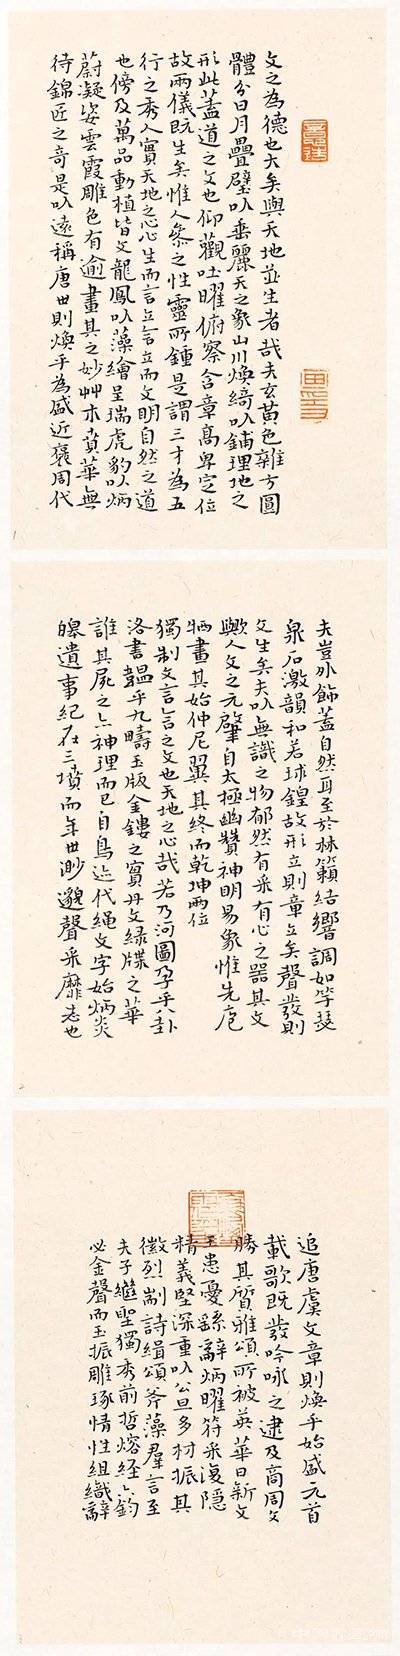 文之為德也大矣與天地並生者哉夫玄黃色雜方圓
體分日月疊璧以垂麗天之象山川煥綺以鋪理地之
形此蓋道之文也仰觀吐曜俯察含章高卑定位
故兩儀既生矣惟人參之性靈所鍾是謂三才為五
行之秀人實天地之心心生而言立言立而文明自然之道
也傍及萬品動植皆文龍鳳以藻繪呈瑞虎豹以炳
蔚凝姿雲霞雕色有逾畫其之妙艸木賁華無
待錦匠之奇是以遠稱唐世則煥乎為盛近褒周代
夫豈外飾蓋自然耳至於林籟結響調如竽瑟
泉石激韻和若球鍠故形立則章立矣聲發則
文生矣夫以無識之物郁然有采有心之器其文
歟人文之元肇自太極幽贊神明易象惟先庖
牺畫其始仲尼翼其終而乾坤兩位
獨制文言言之文也天地之心哉若乃河圖孕乎八卦
洛書韞乎九疇玉版金鏤之實丹文綠牒之華
誰其屍之亦神理而已自鳥迹代繩文字始炳炎
皞遺事紀在三墳而年世渺邈聲采靡志也
追唐虞文章則煥乎始盛元首
載歌既發吟咏之逮及商周文
勝其質雅頌所被英華日新文
王患憂繇辭炳曜符采復隱
精義堅深重以公旦多材振其
徽烈剬詩緝頌斧藻羣言至
夫子繼聖獨秀前哲熔經六鈞
必金聲而玉振雕琢情性組織辭